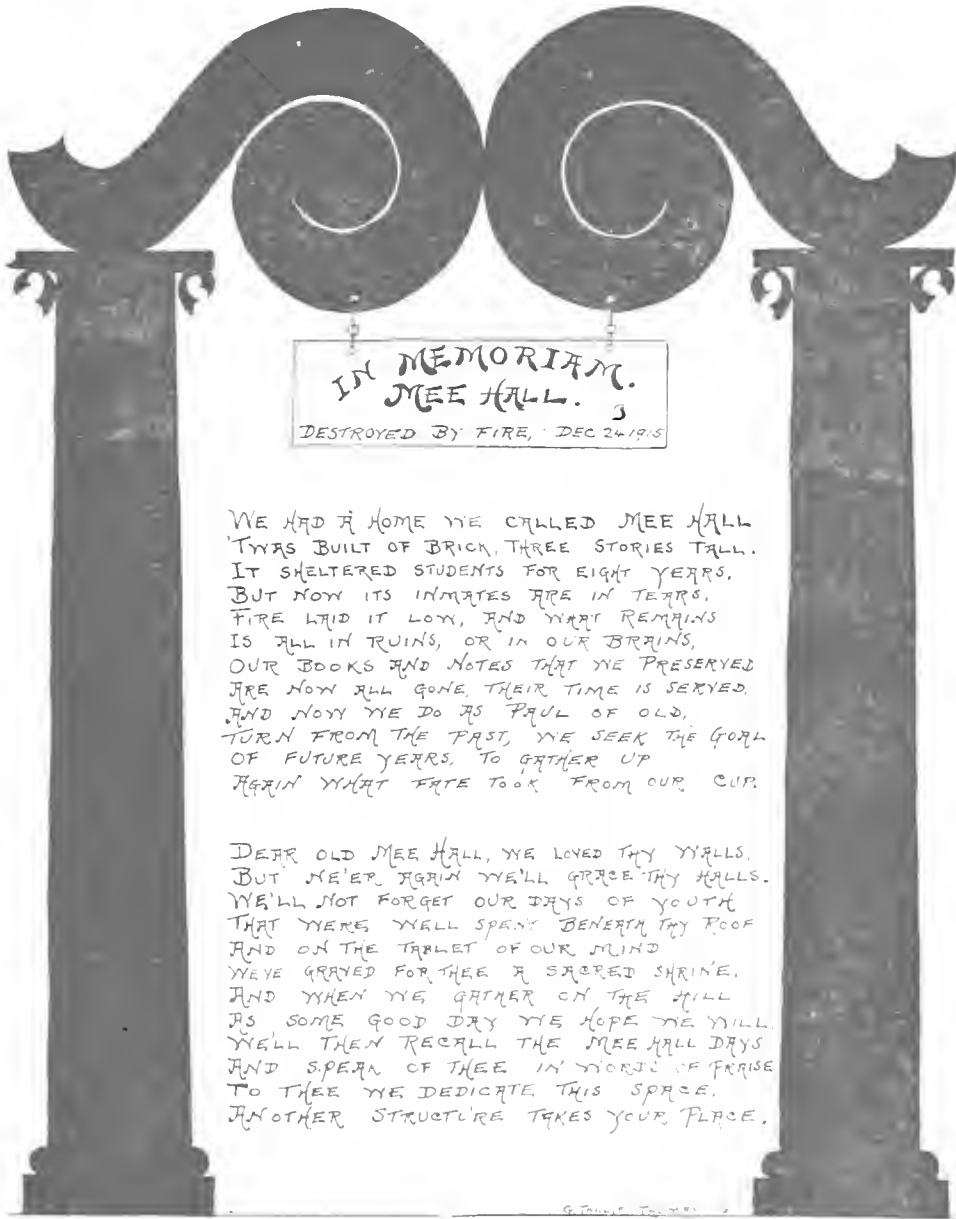 IN MEMORIAM.
MEE HALL.
3
DESTROYED BY FIRE, DEC 24 1915
WE HAD A HOME WE CALLED MEE HALL
'TWAS BUILT OF BRICK, THREE STORIES TALL.
IT SHELTERED STUDENTS FOR EIGHT YEARS,
BUT NOW ITS INMATES ARE IN TEARS,
FIRE LAID IT LOW, AND WHAT REMAINS
IS ALL IN RUINS, OR IN OUR BRAINS,
OUR BOOKS AND NOTES THAT WE PRESERVED
ARE NOW ALL GONE, THEIR TIME IS SERVED,
AND NOW WE DO AS PAUL OF OLD,
TURN FROM THE PAST, WE SEEK THE GOAL
OF FUTURE YEARS, TO GATHER UP
AGAIN WHAT FATE TOOK FROM OUR CUP.
DEAR OLD MEE HALL, WE LOVED THY WALLS,
BUT NE'ER AGAIN WE'LL GRACE THY HALLS.
WE'LL NOT FORGET OUR DAYS OF YOUTH
THAT WERE WELL SPENT BENEATH THY ROOF
AND ON THE TABLET OF OUR MIND
WEVE GRAVED FOR THEE A SACRED SHRINE,
AND WHEN WE GATHER ON THE HILL
AS SOME GOOD DAY WE HOPE WE WILL,
WE'LL THEN RECALL THE MEE HALL DAYS
AND SPEAK OF THEE IN WORDS OF PRAISE
TO THEE WE DEDICATE THIS SPACE,
ANOTHER STRUCTURE TAKES YOUR PLACE.
G.